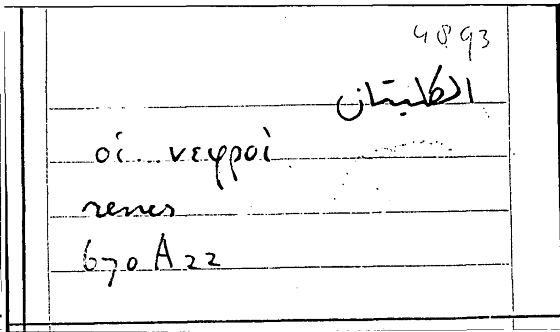 4893
الكليتان
οἱ νεφροὶ
renes
670 A 22